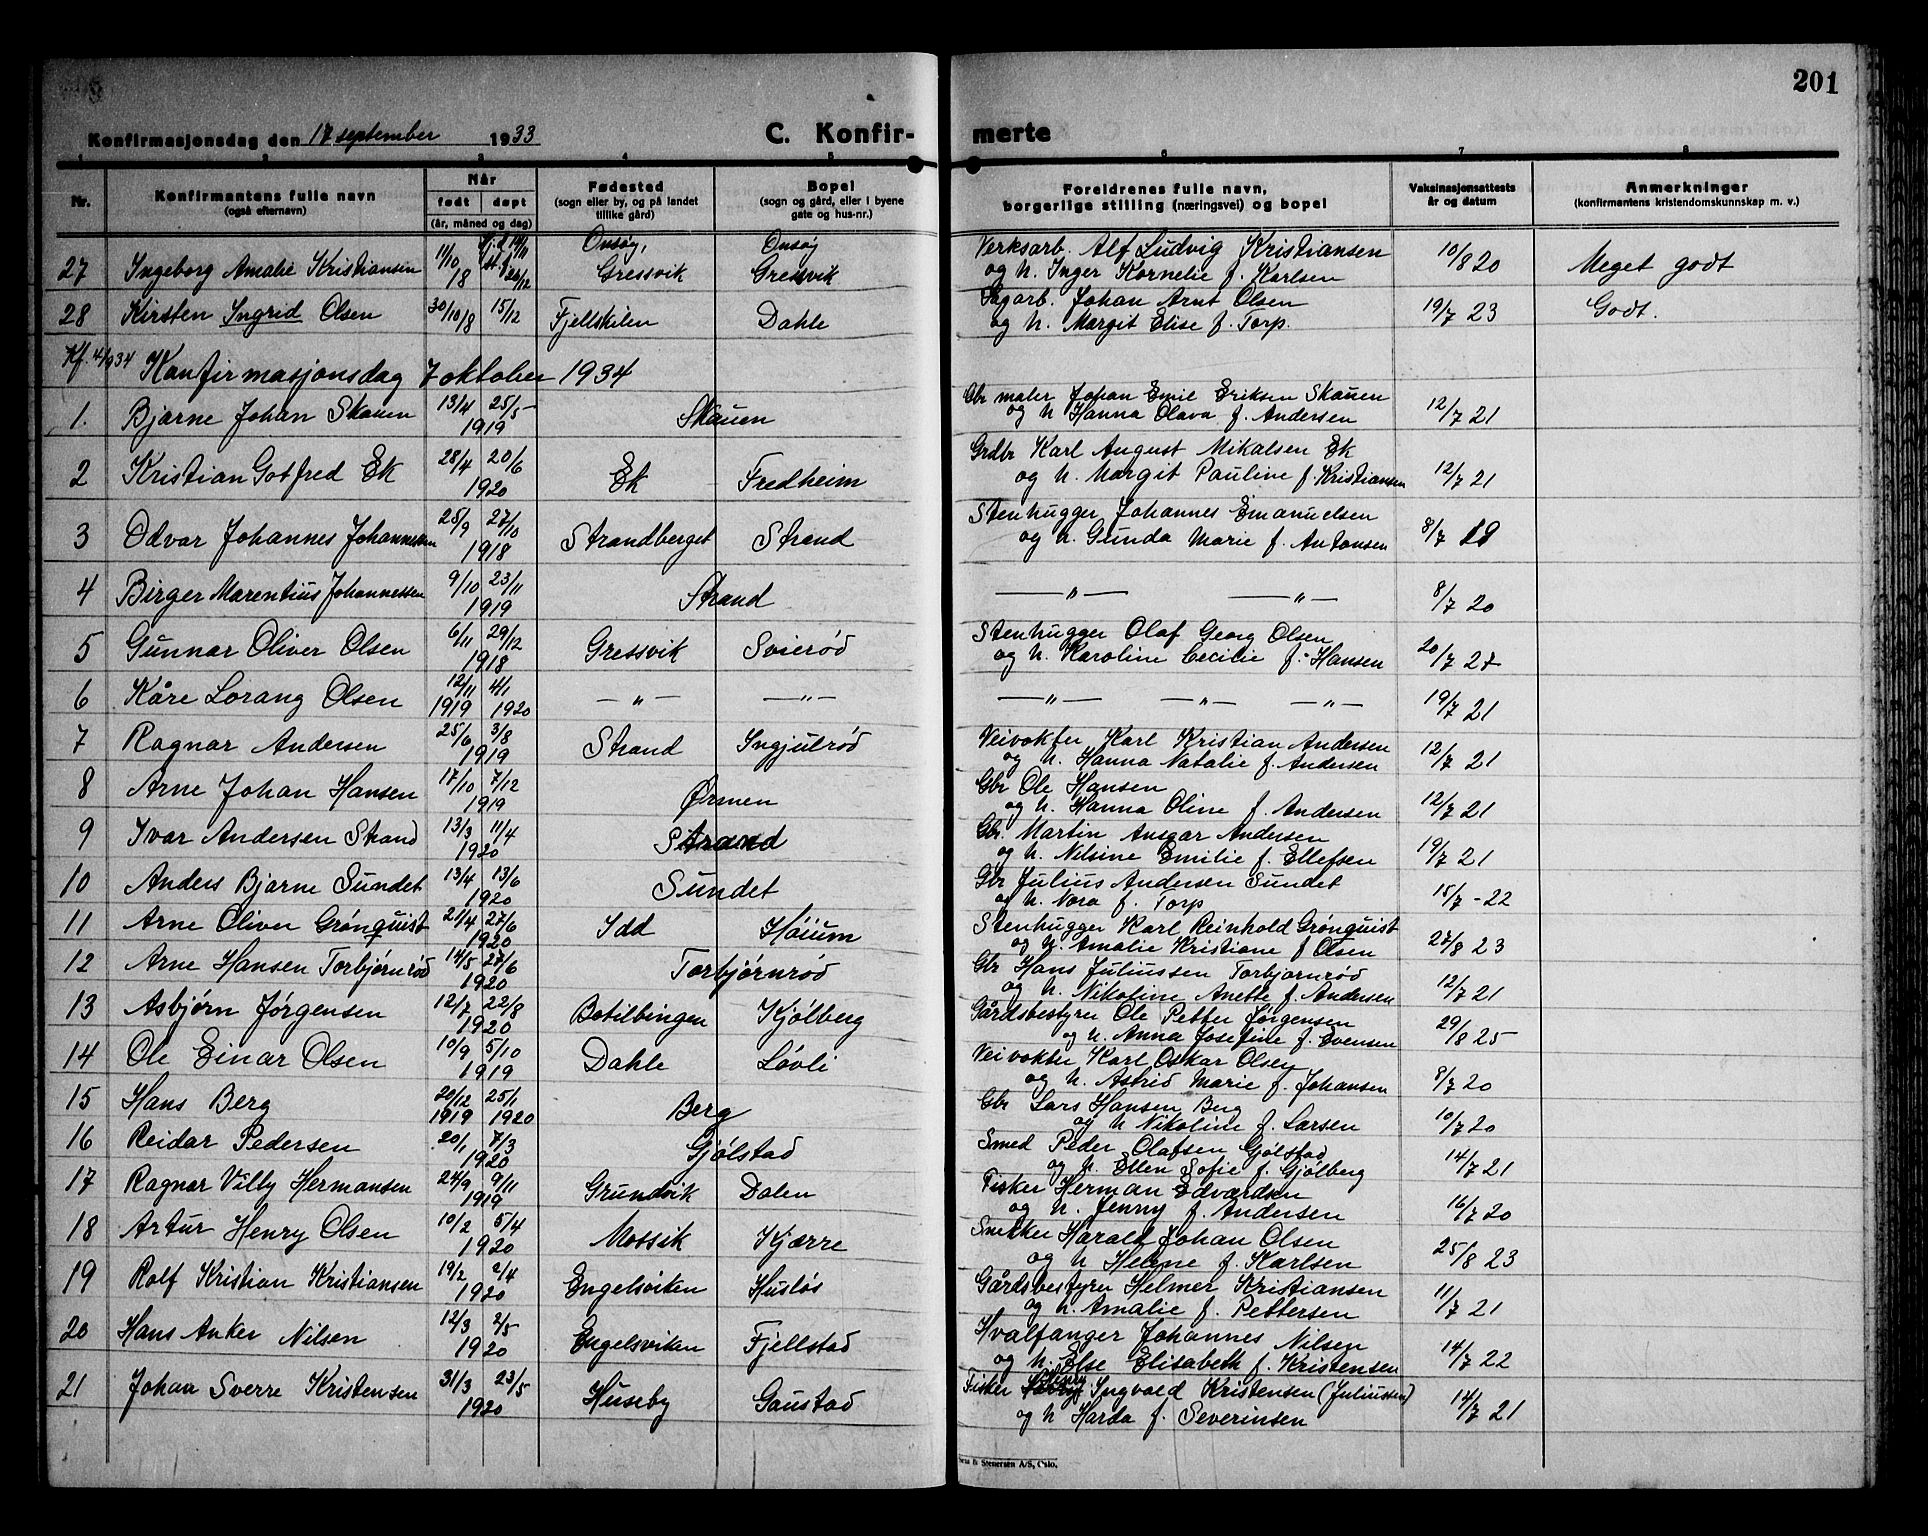 201
Konfirmasjonsdag den 17 september 1933 C. Konfir- merte
1 2 3 4 5 6 7 8
Nr. Konfirmantens fulle navn (også efternavn) Når født døpt (år, måned og dag) Fødested (sogn eller by, og på landet tillike gård) Bopel (sogn og gård, eller i byene gate og hus-nr.) Foreldrenes fulle navn, borgerlige stilling (næringsvei) og bopel Vaksinasjonsattests år og datum Anmerkninger (konfirmantens kristendomskunnskap m. v.)
27 Ingeborg Amalie Kristiansen 11/10 18 Onsøy, Gressvik Onsøy Gressvik Verksarb. Alf Ludvig Kristiansen og h. Inger Kornelie f. Karlsen 10/8 20 Meget godt
28 Kirsten Ingrid Olsen 30/10 18 15/12 Fjellskilen Dahle Sagarb. Johan Arnt Olsen og h. Margit Elise f. Torp. 19/7 23 Godt.
Kf. 4/934 Konfirmasjonsdag 7 oktober 1934
1. Bjarne Johan Skauen 13/4 25/5 1919 Skauen Gbr maler Johan Emil Eriksen Skauen og h Hanna Olava f. Andersen 12/7 21
2 Kristian Gotfred Ek 28/4 20/6 1920 Ek Fredheim Grdbr Karl August Mikalsen Ek og h. Margit Pauline f. Kristiansen 12/7 21
3 Odvar Johannes Johannessen 25/9 27/10 1918 Strandberget Strand Stenhugger Johannes Emanuelsen og h. Gunda Marie f. Antonsen 8/7 19
4 Birger Marentius Johannessen 9/10 23/11 1919 Strand — " — — " — 8/7 20
5 Gunnar Oliver Olsen 6/11 29/12 1918 Gressvik Svierød Stenhugger Olaf Georg Olsen og h. Karoline Cecilie f. Hansen 20/7 27
6 Kåre Lorang Olsen 12/11 1919 4/1 1920 — " — — " — — " — — " — — " — 19/7 21
7 Ragnar Andersen 25/6 3/8 1919 Strand Ingjulrød Veivokter Karl Kristian Andersen og h. Hanna Natalie f. Andersen 12/7 21
8 Arne Johan Hansen 17/10 7/12 1919 Ørmen Gbr Ole Hansen og h. Hanna Oline f. Andersen 12/7 21
9 Ivar Andersen Strand 13/3 11/4 1920 Strand Gbr. Martin Ansgar Andersen og h. Nilsine Emilie f. Ellefsen 19/7 21
10 Anders Bjarne Sundet 13/4 13/6 1920 Sundet Gbr Julius Andersen Sundet og h. Nora f. Torp 15/7 - 22
11 Arne Oliver Grönquist 21/4 27/6 1920 Idd Høium Stenhugger Karl Reinhold Grönquist og h. Amalie Kristiane f Olsen 27/8 23
12 Arne Hansen Torbjørnrød 14/5 27/6 1920 Torbjørnrød Gbr Hans Juliussen Torbjørnrød og h. Nikoline Anette f. Andersen 12/7 21
13 Asbjørn Jørgensen 12/7 22/8 1920 Botilbingen Kjølberg Gårdsbestyrer Ole Petter Jørgensen og h. Anna Josefine f. Evensen 29/8 25
14 Ole Einar Olsen 10/9 5/10 1919 Dahle Løvli Veivokter Karl Oskar Olsen og h. Astrid Marie f. Johansen 8/7 20
15 Hans Berg 20/12 1919 25/1 1920 Berg Gbr Lars Hansen Berg og h Nikoline f. Larsen 10/7 20
16 Reidar Pedersen 20/1 7/3 1920 Gjølstad Smed Peder Olafsen Gjølstad og h. Ellen Sofie f. Gjølberg 14/7 21
17 Ragnar Villy Hermansen 24/9 9/11 1919 Grundvik Dalen Fisker Herman Edvardsen og h. Jenny f. Andersen 16/7 20
18 Artur Henry Olsen 10/2 5/4 1920 Mossik Kjærre Snekker Harald Johan Olsen og h Helene f. Karlsen 25/8 23
19 Rolf Kristian Kristiansen 19/2 2/4 1920 Engelsviken Husløs Gårdsbestyrer Helmer Kristiansen og h. Amalie f. Pettersen 11/7 21
20 Hans Anker Nilsen 12/3 2/5 1920 Engelsviken Fjellstad Hvalfanger Johannes Nilsen og h. Else Elisabeth f. Kristensen 14/7 22
21 Johan Sverre Kristensen 31/3 23/5 1920 Huseby Gaustad Fisker Ingvald Kristensen (Juliussen) og h Harda f. Severinsen 14/7 21
Stenersen A/S, Oslo.